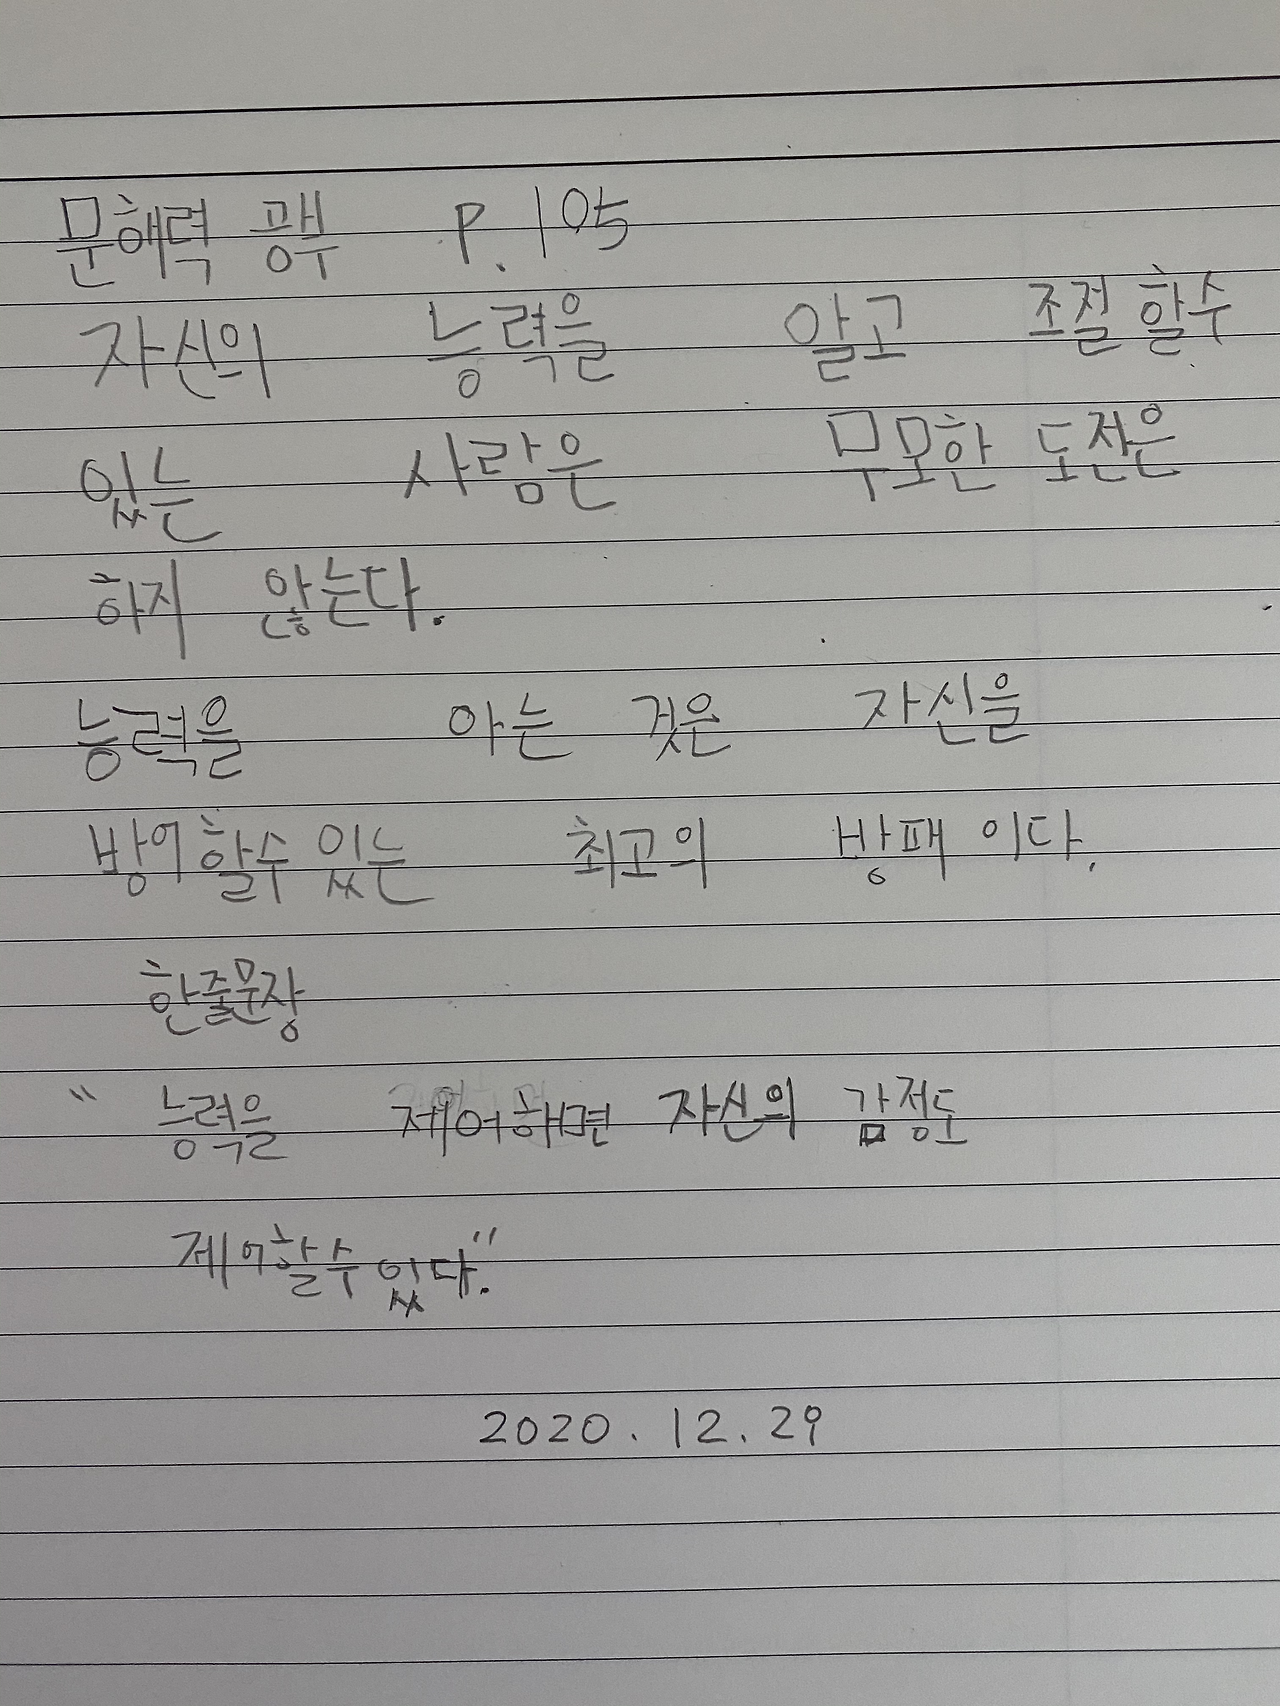 문해력 공부 P.105
자신의 능력을 알고 조절 할수
있는 사람은 무모한 도전은
하지 않는다.
능력을 아는 것은 자신을
방어할수 있는 최고의 방패 이다.
한줄문장
" 능력을 제어해면 자신의 감정도
제어할수 있다."
2020.12.29